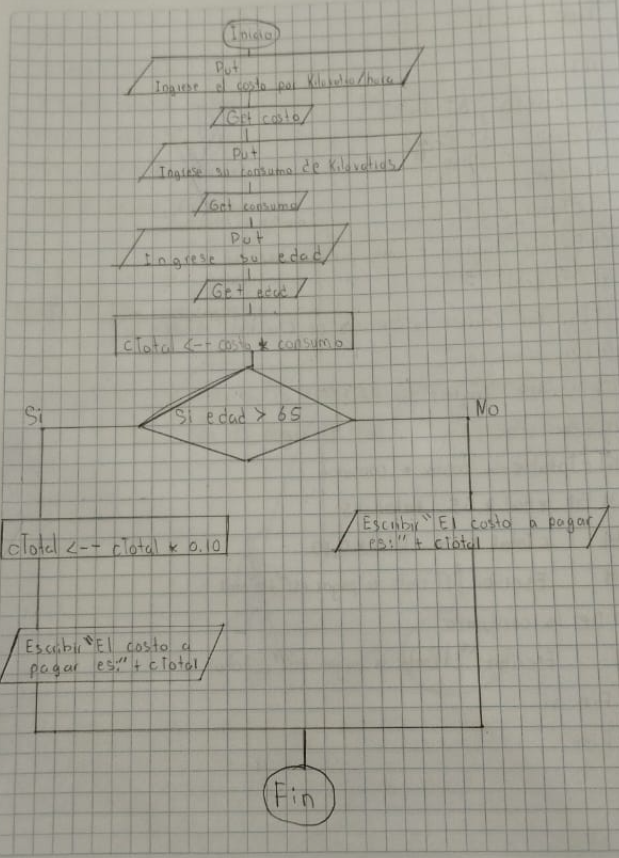 Inicio
Put
Ingrese el costo por Kilovatio/hora
Get costo
Put
Ingrese su consumo de Kilovatios
Get consumo
Put
Ingrese su edad
Get edad
cTotal <-- costo * consumo
Si edad > 65
Si
No
cTotal <-- cTotal * 0.10
Escribir "El costo a pagar
es:" + cTotal
Escribir "El costo a
pagar es:" + cTotal
Fin